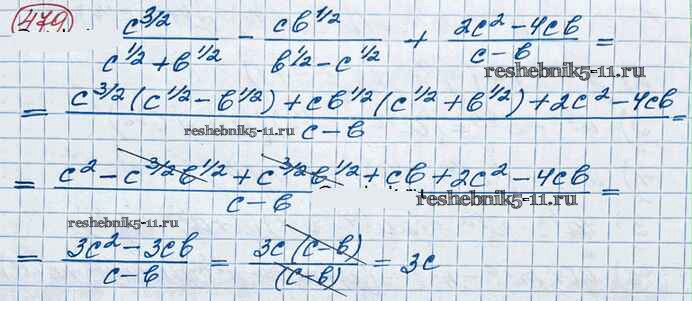 479 c^{3/2}/(c^{1/2}+b^{1/2}) − cb^{1/2}/(b^{1/2}−c^{1/2}) + (2c²−4cb)/(c−b) =
reshebnik5-11.ru
= (c^{3/2}(c^{1/2}−b^{1/2})+cb^{1/2}(c^{1/2}+b^{1/2})+2c²−4cb)/(c−b) =
reshebnik5-11.ru
= (c²−c^{3/2}b^{1/2}+c^{3/2}b^{1/2}+cb+2c²−4cb)/(c−b) =
reshebnik5-11.ru
reshebnik5-11.ru
= (3c²−3cb)/(c−b) = 3c(c−b)/(c−b) = 3c